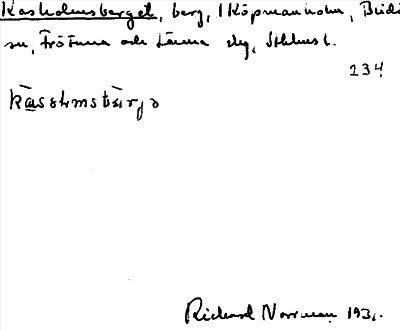 Kasholmsberget, berg, i Köpmanholm, Blidö
sn, Frötuna och Länna skg, Sthlms l.
234
kàsɷlmsbàrjə
Richard Norrman 1931.